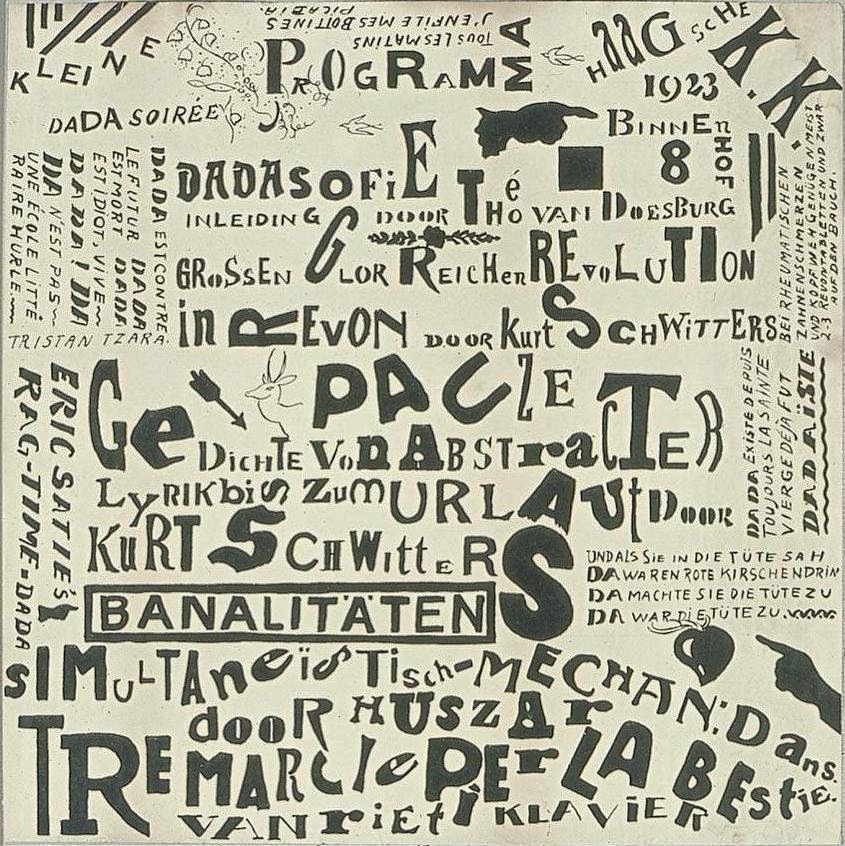 KLEINE
DADA SOIRÉE
TOUS LES MATINS
J'ENFILE MES BOTTINES
PICABIA.
PROGRAMMA
HAAGSCHE K.K.
1923
BINNENHOF 8
DADASOFiE
INLEIDING DOOR Théo VAN DOESBURG
GROSSEN GLORREICHEN REVOLUTION
in REVON DOOR Kurt SCHWiTTERS
DADA EST CONTRE
LE FUTUR DADA
EST MORT DADA
EST IDIOT, VIVE
DADA! DA
DA N'EST PAS
UNE ÉCOLE LITTÉ
RAIRE HURLE
TRISTAN TZARA.
BEI RHEUMATISCHEN
ZAHNENSCHMERZEN
UND KOPFWEH GENÜGEN MEIST
2-3 REVONTABLETTEN UND ZWAR
AUF DEN BAUCH.
PAUZE
GeDICHTE VOn ABSTracTER
LyRIK biS ZUM URLAUt DOOR
KURT SCHWittERS
ERIC SATIE'S
RAG-TIME=DADA
DADA EXISTE DEPUIS
TOUJOURS LA SAINTE
VIERGE DÉJÀ FUT
DADAÏSTE
BANALITÄTEN
UND ALS SIE IN DIE TÜTE SAH
DA WAREN ROTE KIRSCHEN DRIN
DA MACHTE SIE DIE TÜTE ZU
DA WAR DIE TÜTE ZU.
SIMuLTAneïSTisch-MECHAN: Dans.
dooR HUSZAr
TRE MARCIe PEr LA BESTie.
VAN rietI KLAVIER